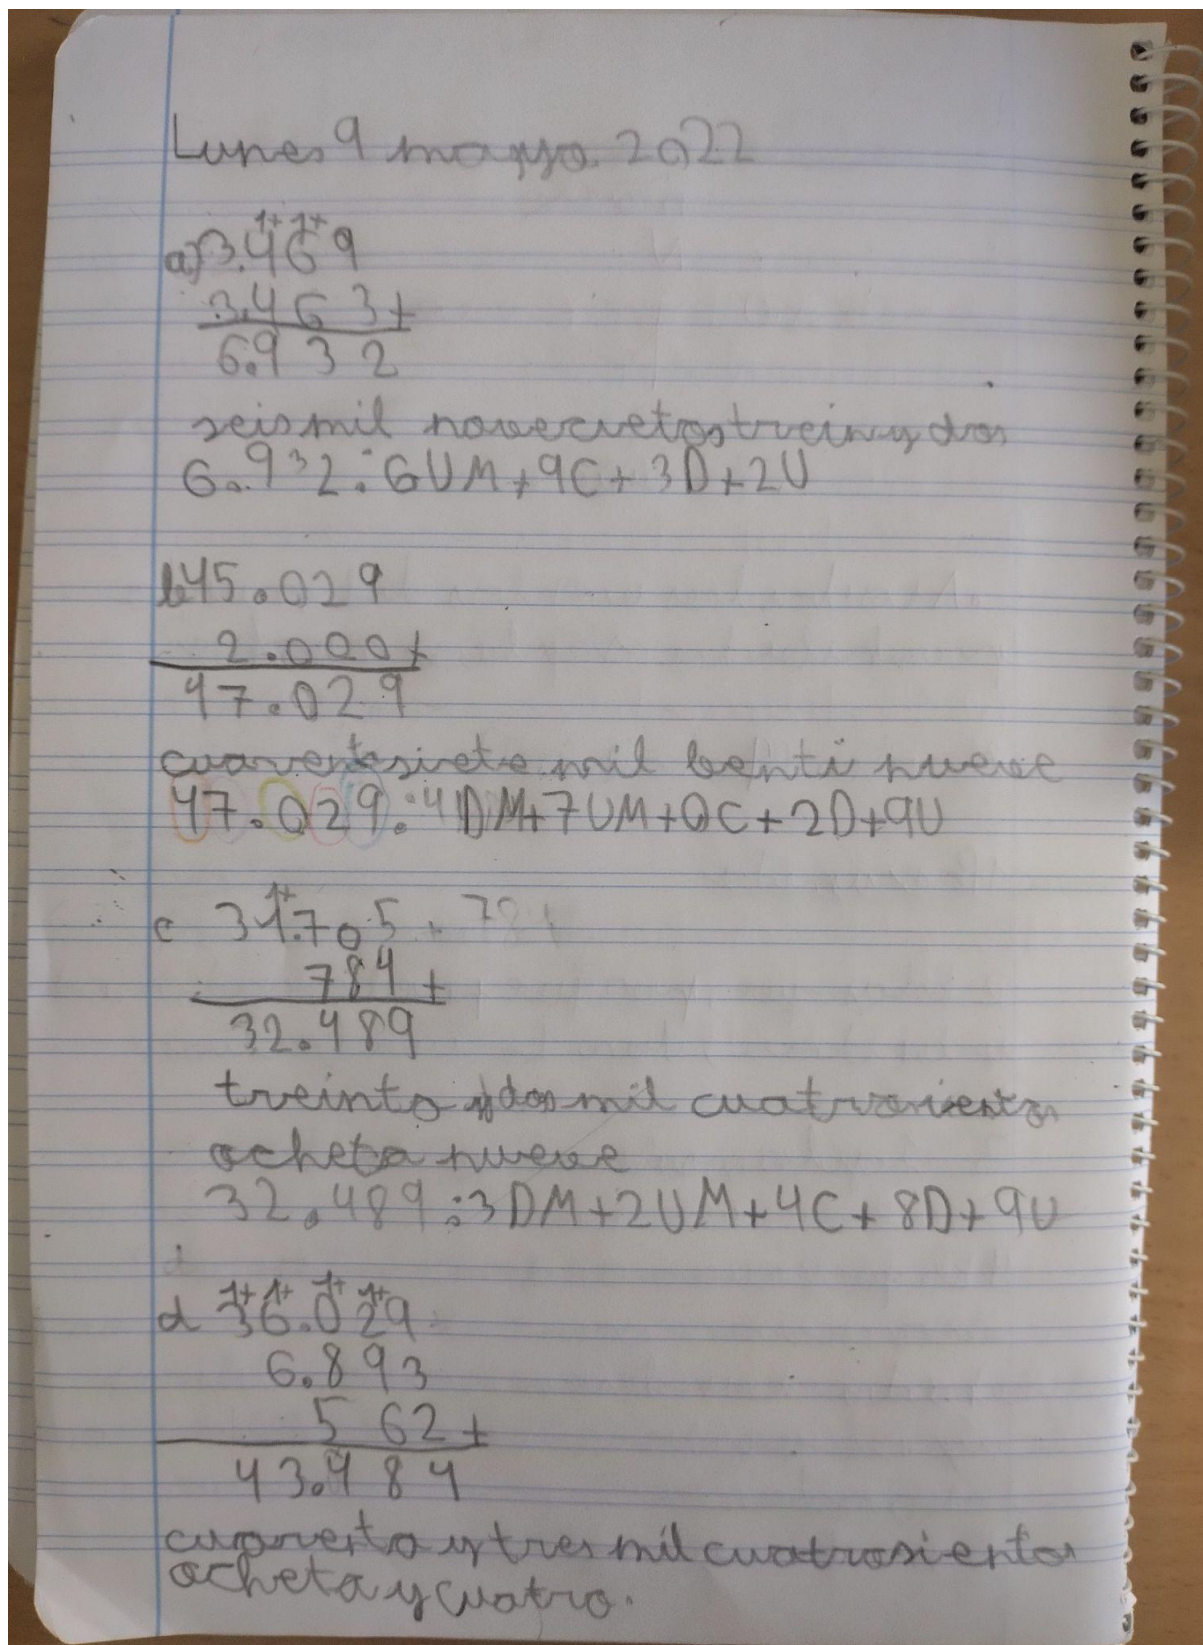 Lunes 9 mayo 2022
1+ 1+
a) 3.469
3.463+
6.932
seis mil novecvetos treinydos
6.932:6UM+9C+3D+2U
b 45.029
2.000+
47.029
cuarentesiete mil benti nueve
47.029:4DM+7UM+0C+2D+9U
1+
c 31.705 + 784
784+
32.489
treinta y dos mil cuatrosientos
ocheta nueve
32.489:3DM+2UM+4C+8D+9U
1+ 1+ 1+ 1+
d 36.029
6.893
562+
43.484
cuarenta y tres mil cuatrosientos
ocheta y cuatro.